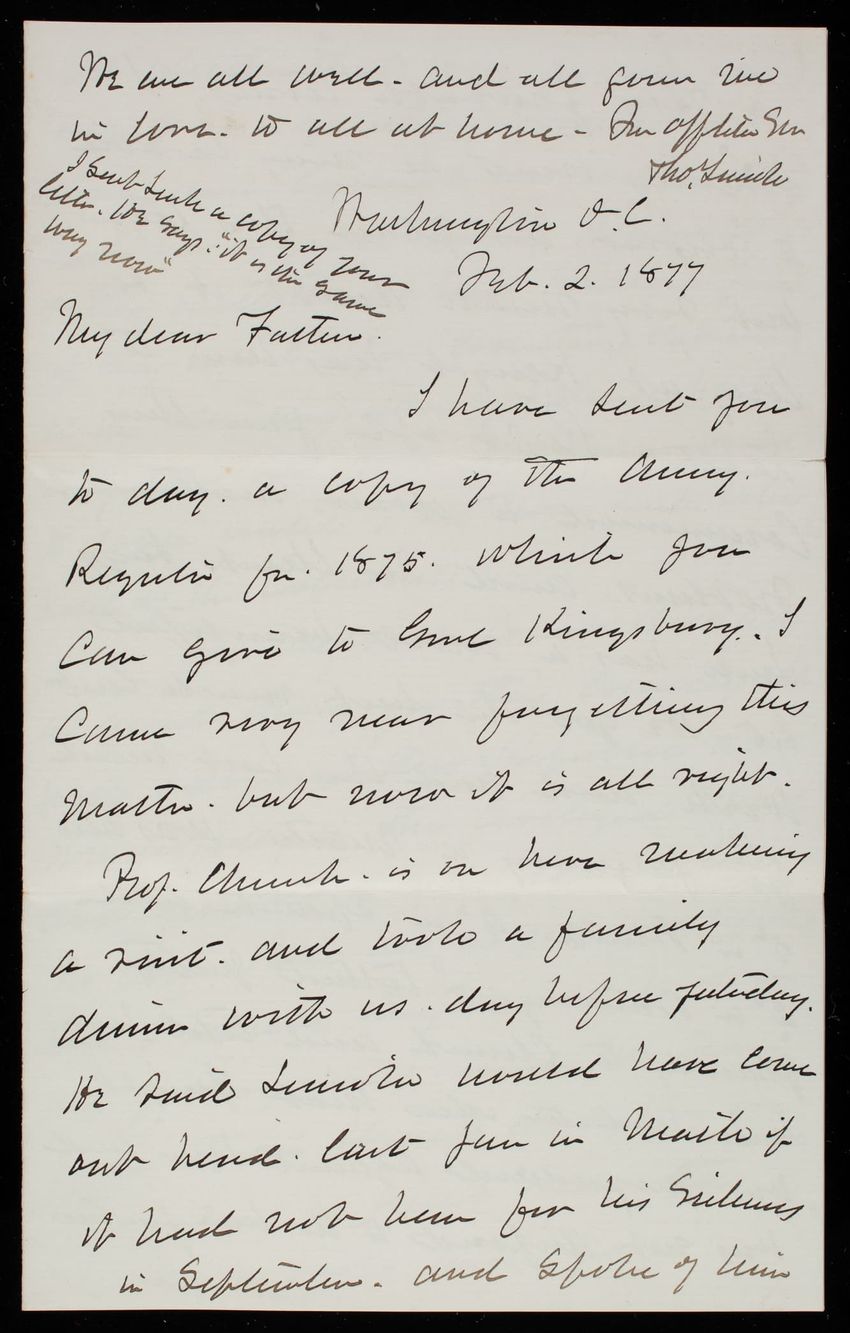 We are all well - and all join me
in love - to all at home - Your affte Son
Thos. Lincoln
I sent Linc a copy of your
letter. He says: "it is the same
way now"
Washington D.C.
Feb. 2. 1877
My dear Father.
I have sent you
to day. a copy of the Army.
Register for. 1875. which you
can give to Genl Kingsbury. I
came very near forgetting this
matter. but now it is all right.
Prof. Church. is on here making
a visit. and took a family
dinner with us. day before yesterday.
He said Lincoln would have come
out head. last year in Math if
it had not been for his sickness
in September. and spoke of him